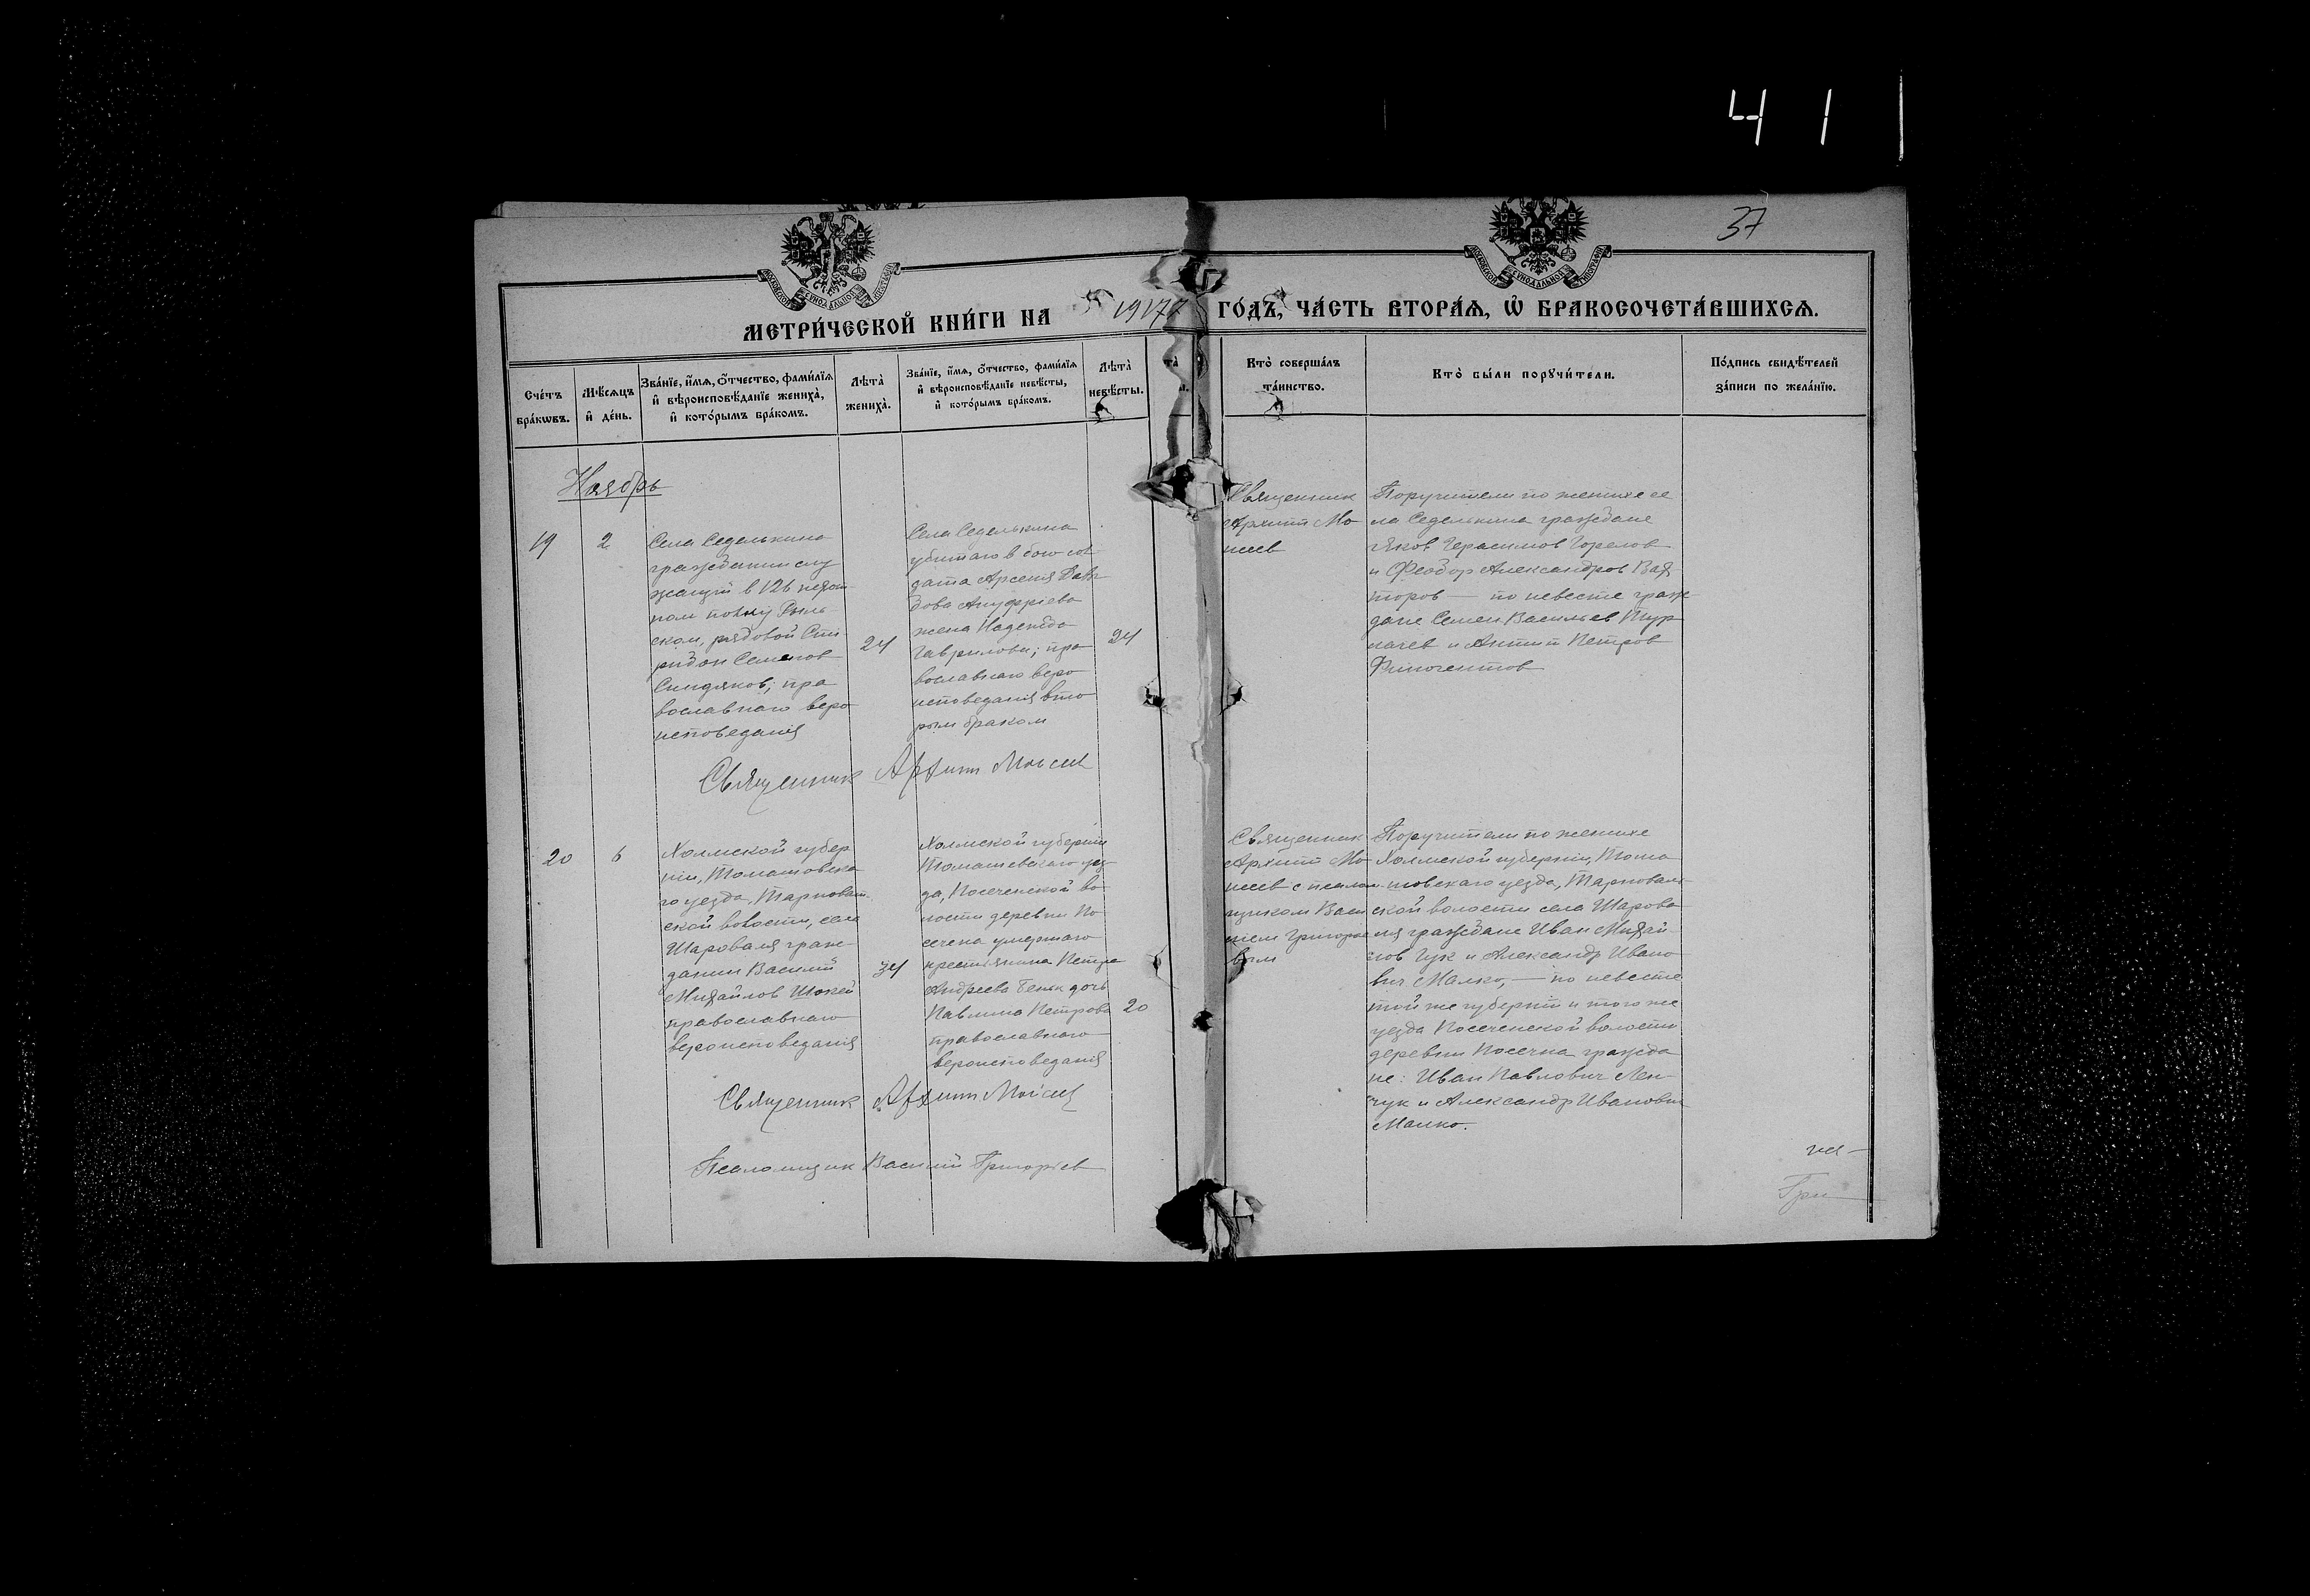 41
37
МЕТРИ́ЧЕСКОЙ КНИ́ГИ НА 1917 ГО́ДЪ, ЧА́СТЬ ВТОРА́Я, Ѡ҆ БРАКОСОЧЕТА́ВШИХСЯ.
Сче́тъ бра́кѡвъ.
Мѣ́сяцъ и҆ де́нь.
Зва́нїе, и҆́мя, ѻ҆́тчество, фами́лїя
и҆ вѣроисповѣ́данїе жениха̀,
и҆ кото́рымъ бра́комъ.
Лѣта̀ жениха̀.
Зва́нїе, и҆́мя, ѻ҆́тчество, фами́лїя
и҆ вѣроисповѣ́данїе невѣ́сты,
и҆ кото́рымъ бра́комъ.
Лѣта̀ невѣ́сты.
Кто̀ соверша́лъ
та́инство.
Кто̀ бы́ли порꙋчи́тели.
По́дпись свидѣ́телей
за́писи по жела́нїю.
Ноябрь
19
2
Села Седелькина
гражданин слу
жащий в 126 пехот
ном полку Рыль
ском, рядовой Спи
ридон Семенов
Синдяков; пра
вославнаго веро
исповедания
24
Села Седелькина
убитаго в бою сол
дата Арсения Давы
дова Ануфриева
жена Надежда
Гаврилова; пра
вославнаго веро
исповедания вто
рым браком
24
Священник
Архипп Мо
исеев
Поручители по женихе се
ла Седелькина граждане
Яков Герасимов Горелов
и Феодор Александров
по невесте граж
дане Семен Васильев
и Антип Петров
Финогентов
Священник Архипп Моисеев
20
6
Холмской губер
нии, Томашовска
го уезда, Тарноват
ской волости, села
Шароволя граж
данин Василий
Михайлов
православнаго
вероисповедания
34
Холмской губернии
Томашевскаго уез
да, Посеченской во
лости деревни По
сечена умершаго
крестьянина Петра
Андреева дочь
Павлина Петрова
православнаго
вероисповедания
20
Священник
Архипп Мо
исеев с псалом
щиком Васи
лием Григорье
вым
Поручители по женихе
Холмской губернии, Тома
шовскаго уезда, Тарноват
ской волости села Шарово
ля граждане Иван Михай
лов Гук и Александр Ивано
вич Малко, — по невесте
той же губернии и того же
уезда Посеченской волости
деревни Посечна гражда
не: Иван Павлович Лен
чук и Александр Иванович
Малко.
Священник Архипп Моисеев
Псаломщик Василий Григорьев